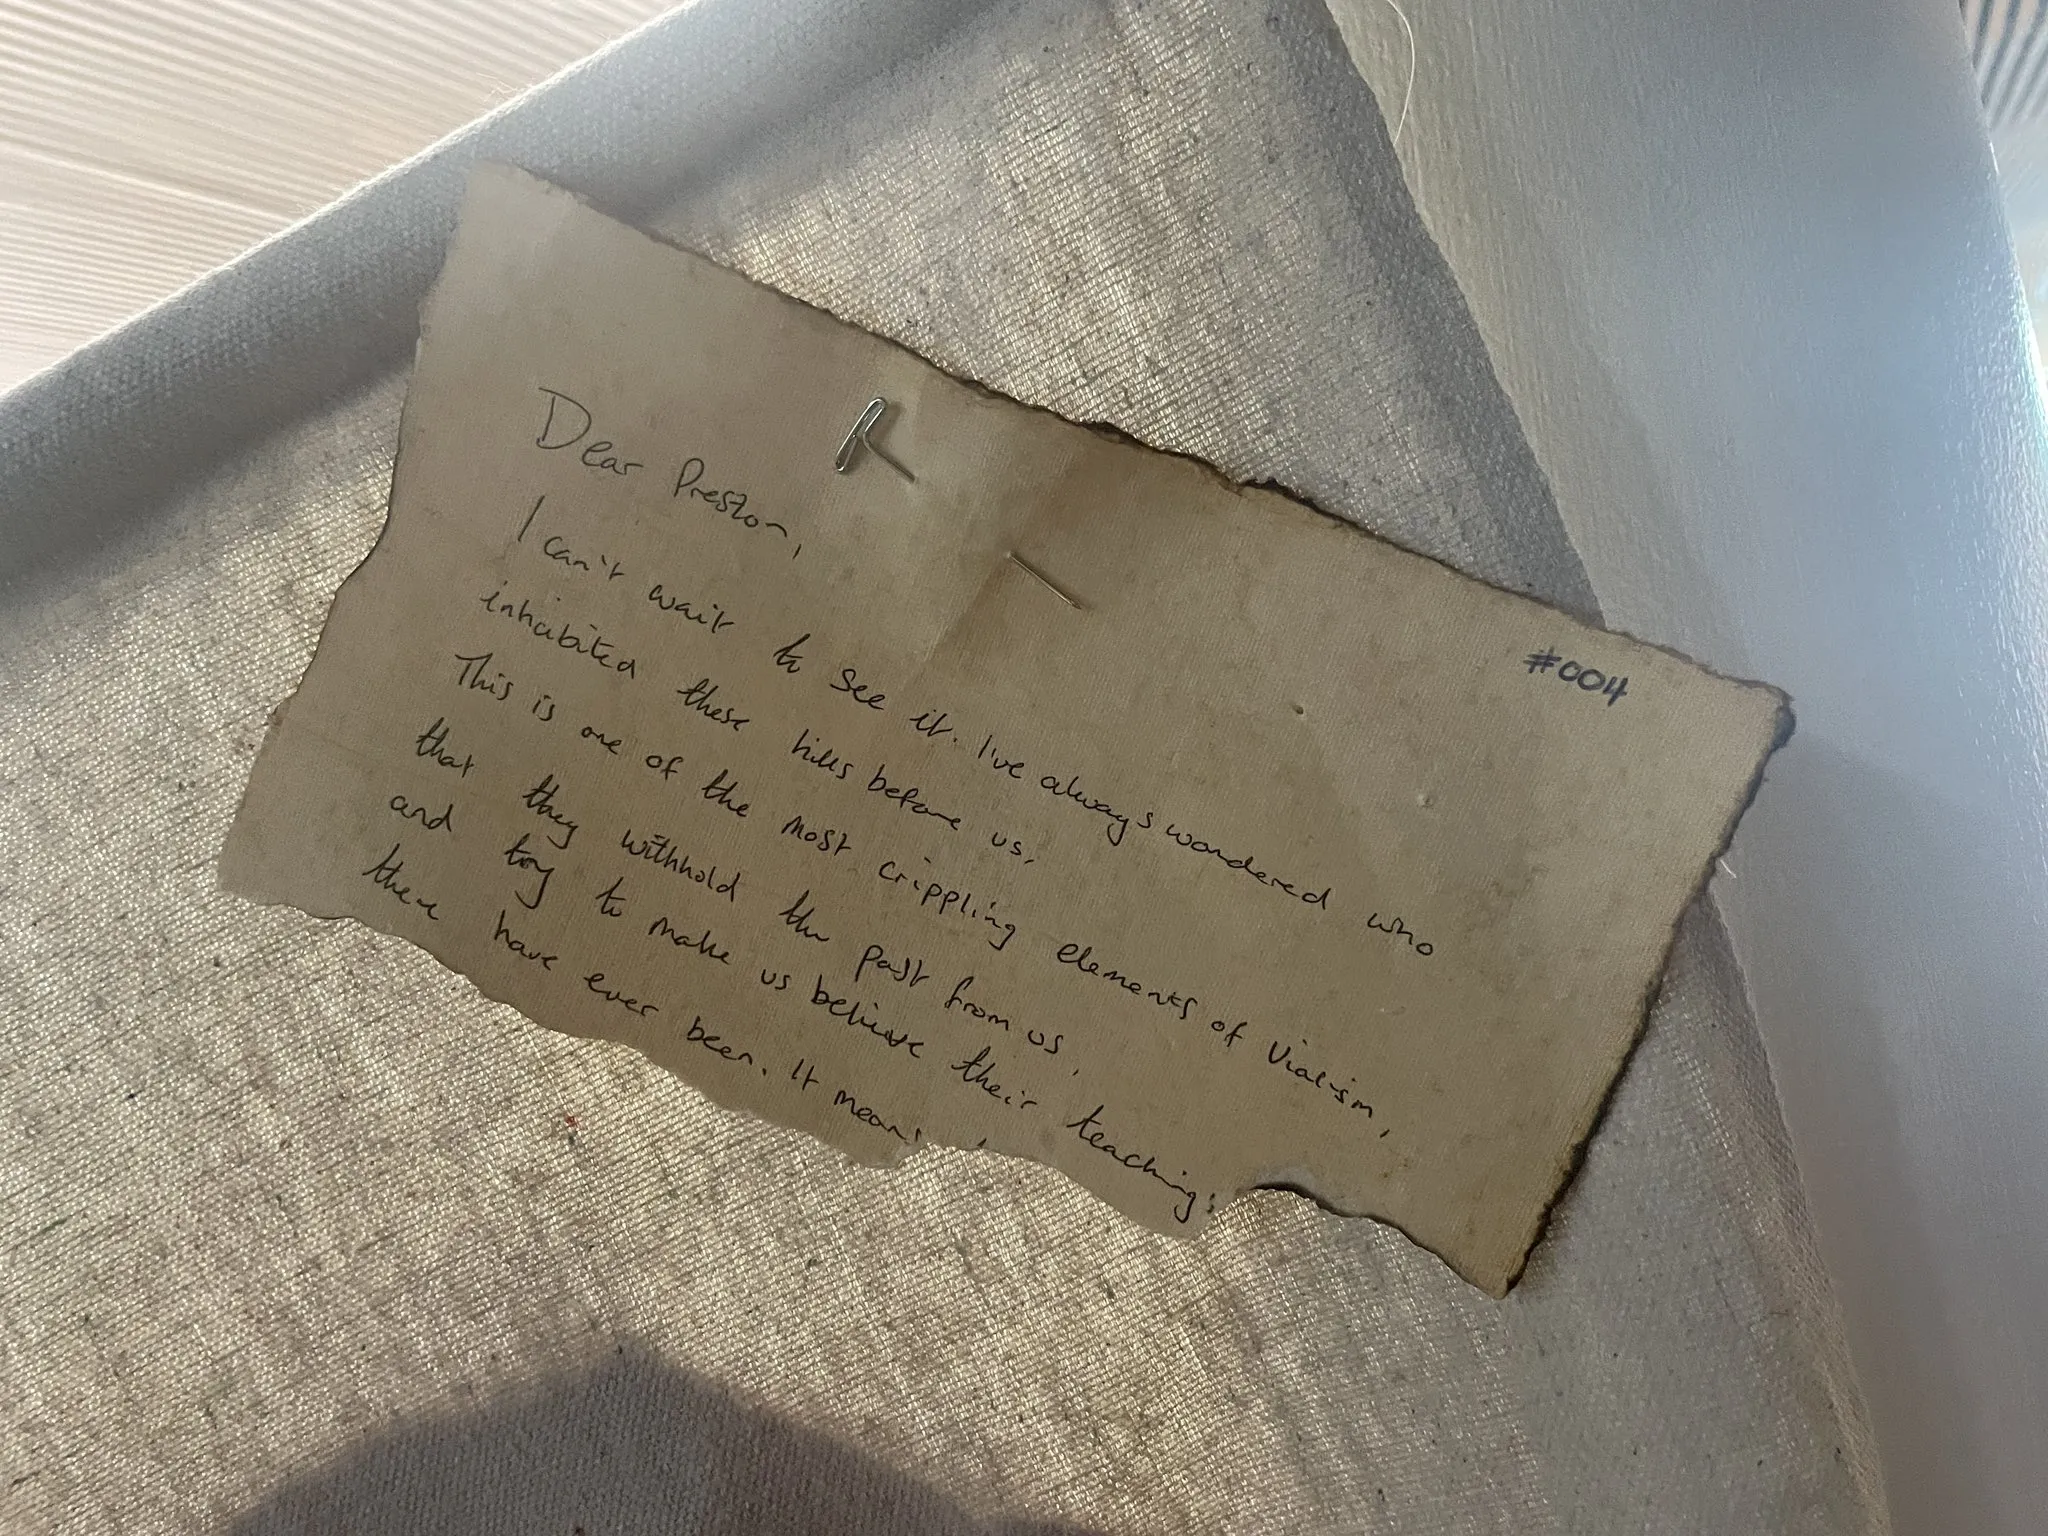 #004
Dear Preston,
I can't wait to see it. I've always wondered who
inhabited these hills before us,
This is one of the most crippling elements of Vialism,
that they withhold the past from us,
and try to make us believe their teachings
there have ever been. It means